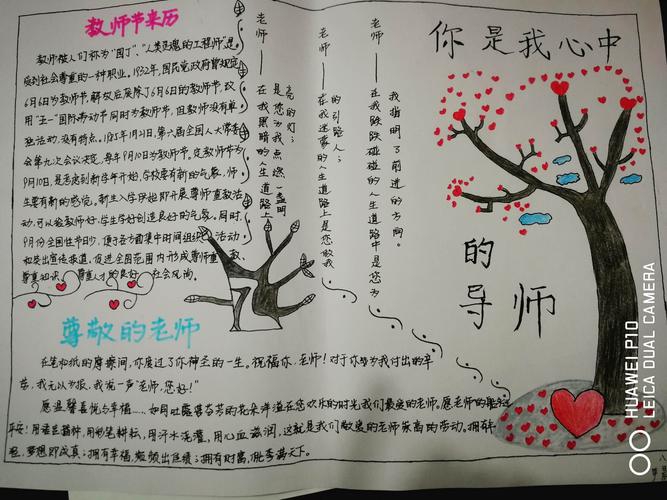 教师节来历
教师被人们称为"园丁"、"人类灵魂的工程师"，是
受到社会尊重的一种职业。1932年，国民党政府曾规定
6月6日为教师节，解放后废除了6月6日的教师节，改
用"五一"国际劳动节同时为教师节，但教师没有单
独活动，没有特点。1985年1月21日，第六届全国人大常委
会第九次会议决定，每年9月10日为教师节。定教师节为
9月10日，是考虑到新学年开始，学校要有新的气象，师
生要有新的感觉。新生入学伊始即开展尊师重教活
动，可以给教师好，学生学好创造良好的气氛。同时，
9月份全国性节日少，便于各方面集中时间组织活动
和突出宣传报道，促进全国范围内形成尊师重教、
尊重知识、尊重人才的良好社会风尚。
老师——
在我黑暗的人生道路上
是您为我点燃一盏明
亮的灯；
老师——
在我迷蒙的人生道路上是您做我
的引路人；
老师——
在我跌跌碰碰的人生道路中是您为
我指明了前进的方向。
你是我心中
的
导师
尊敬的老师
在笔和纸的摩擦间，你度过了你神圣的一生。祝福你，老师！对于你为我付出的辛
苦，我无以为报，我说一声"老师，您好！"
愿温馨喜悦与幸福……如同吐露着芬芳的花朵洋溢在您欢乐的时光我们最爱的老师。愿老师的
平安！用语言播种，用彩笔耕耘，用汗水浇灌，用心血滋润，这就是我们敬爱的老师崇高的劳动。拥有
，梦想即成真；拥有幸福，频频出佳绩；拥有时富，桃李满天下。
HUAWEI P10
LEICA DUAL CAMERA